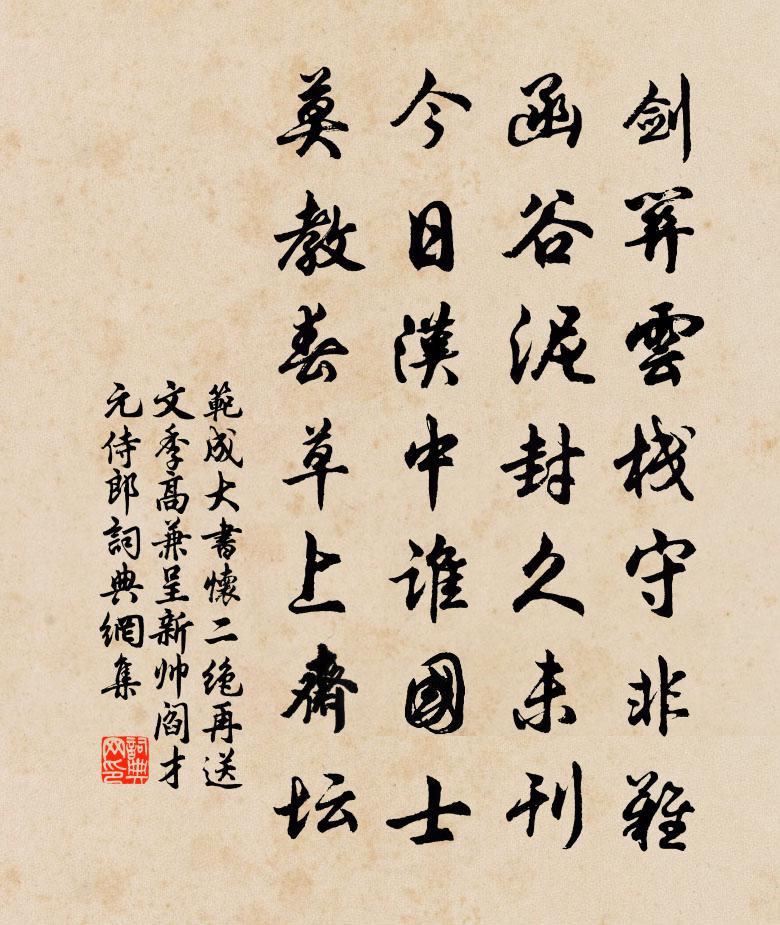 剑笄雲栈守非難
函谷泥封久未刊
今日漢中谁國士
莫教春草上齋坛
範成大書懷二绝再送
文季高兼呈新帅阎才
元侍郎詞典網集
詞典网印